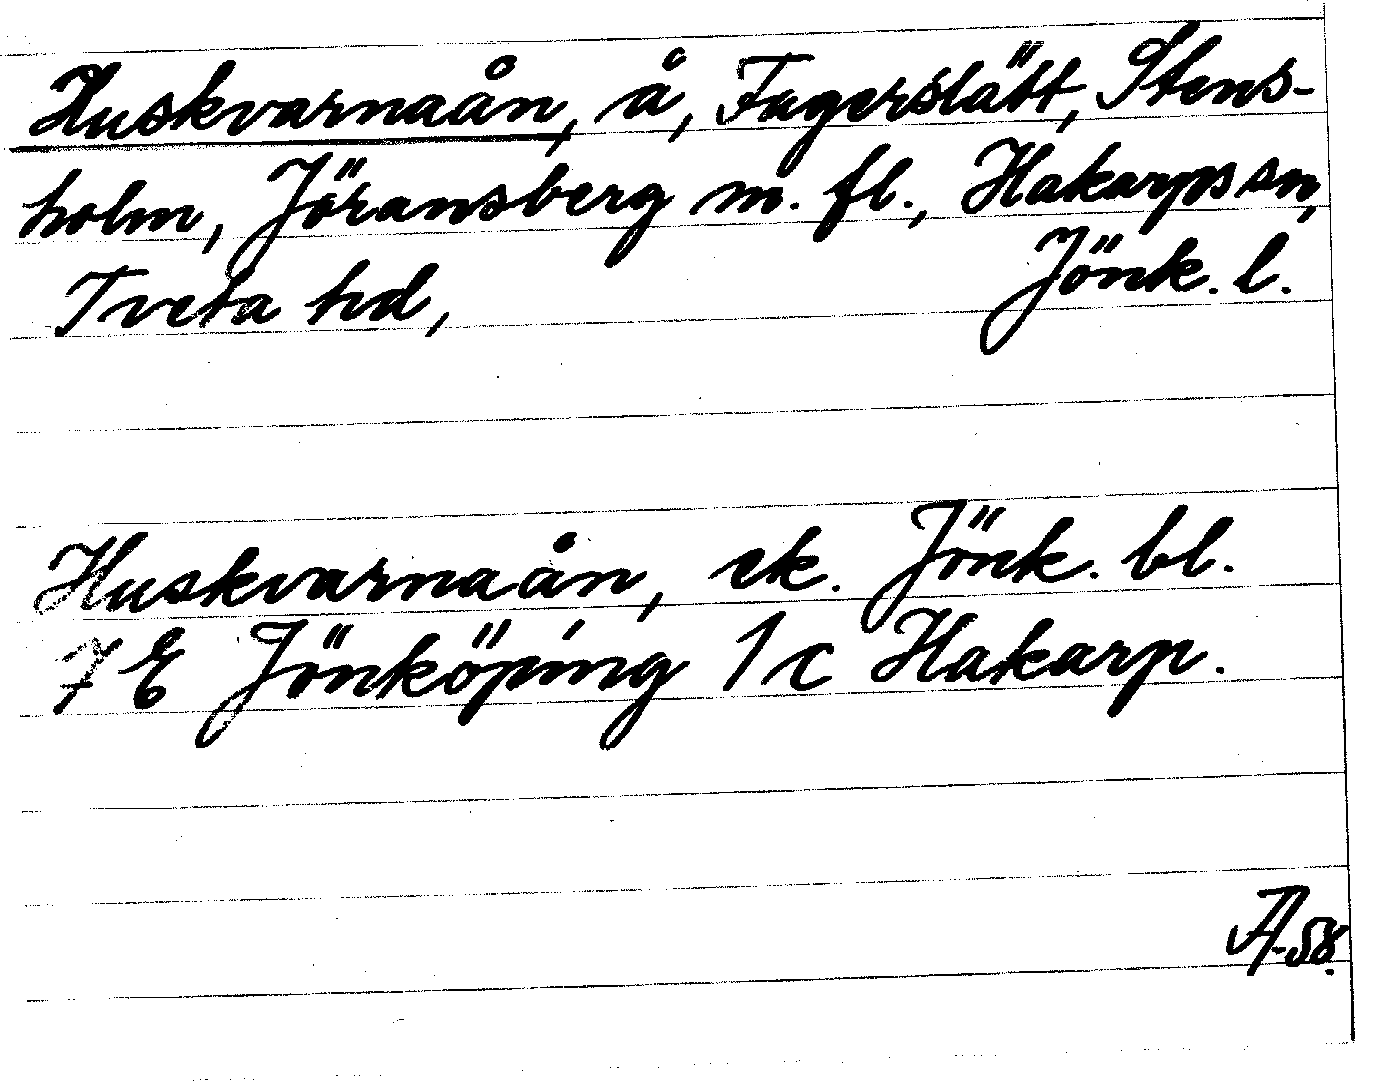 Huskvarnaån, å, Fagerslätt, Stens-
holm, Jöransberg m. fl., Hakarps sn,
Tveta hd, Jönk. l.
Huskvarnaån, ek. Jönk. bl.
7 E Jönköping 1 c Hakarp.
A-58.